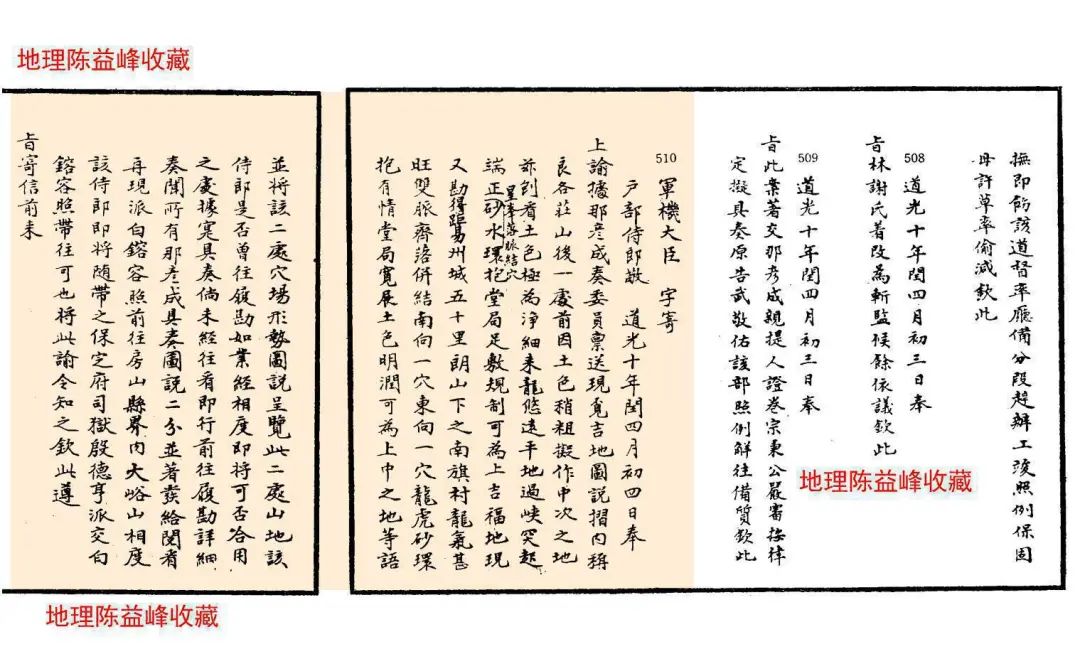 地理陈益峰收藏
撫即飭該道督率廳備分段趕辦工竣照例保固
毋許草率偷減欽此
508
道光十年閏四月初三日奉
旨林謝氏著改為斬監候餘依議欽此
509
道光十年閏四月初三日奉
旨此案著交那彥成親提人證卷宗秉公嚴審按律
定擬具奏原告武敬佑該部照例解往備質欽此
地理陈益峰收藏
510
軍機大臣 字寄
戶部侍郎敬 道光十年閏四月初四日奉
上諭據那彥成奏委員稟送現覓吉地圖說摺內稱
良各莊山後一處前因土色稍粗擬作中次之地
茲刨看土色極為淨細來龍悠遠平地過峽突起
星峯落脈結穴
端正砂水環抱堂局足敷規制可為上吉福地現
又勘得距易州城五十里朗山下之南旗村龍氣甚
旺雙脈齊落併結南向一穴東向一穴龍虎砂環
抱有情堂局寬展土色明潤可為上中之地等語
並將該二處穴場形勢圖說呈覽此二處山地該
侍郎是否曾往履勘如業經相度即將可否合用
之處據實具奏倘未經往看即行前往履勘詳細
奏聞所有那彥成具奏圖說二分並著發給閱看
再現派白鎔容照前往房山縣界內大峪山相度
該侍郎即將隨帶之保定府司獄殷德亨派交白
鎔容照帶往可也將此諭令知之欽此遵
旨寄信前來
地理陈益峰收藏